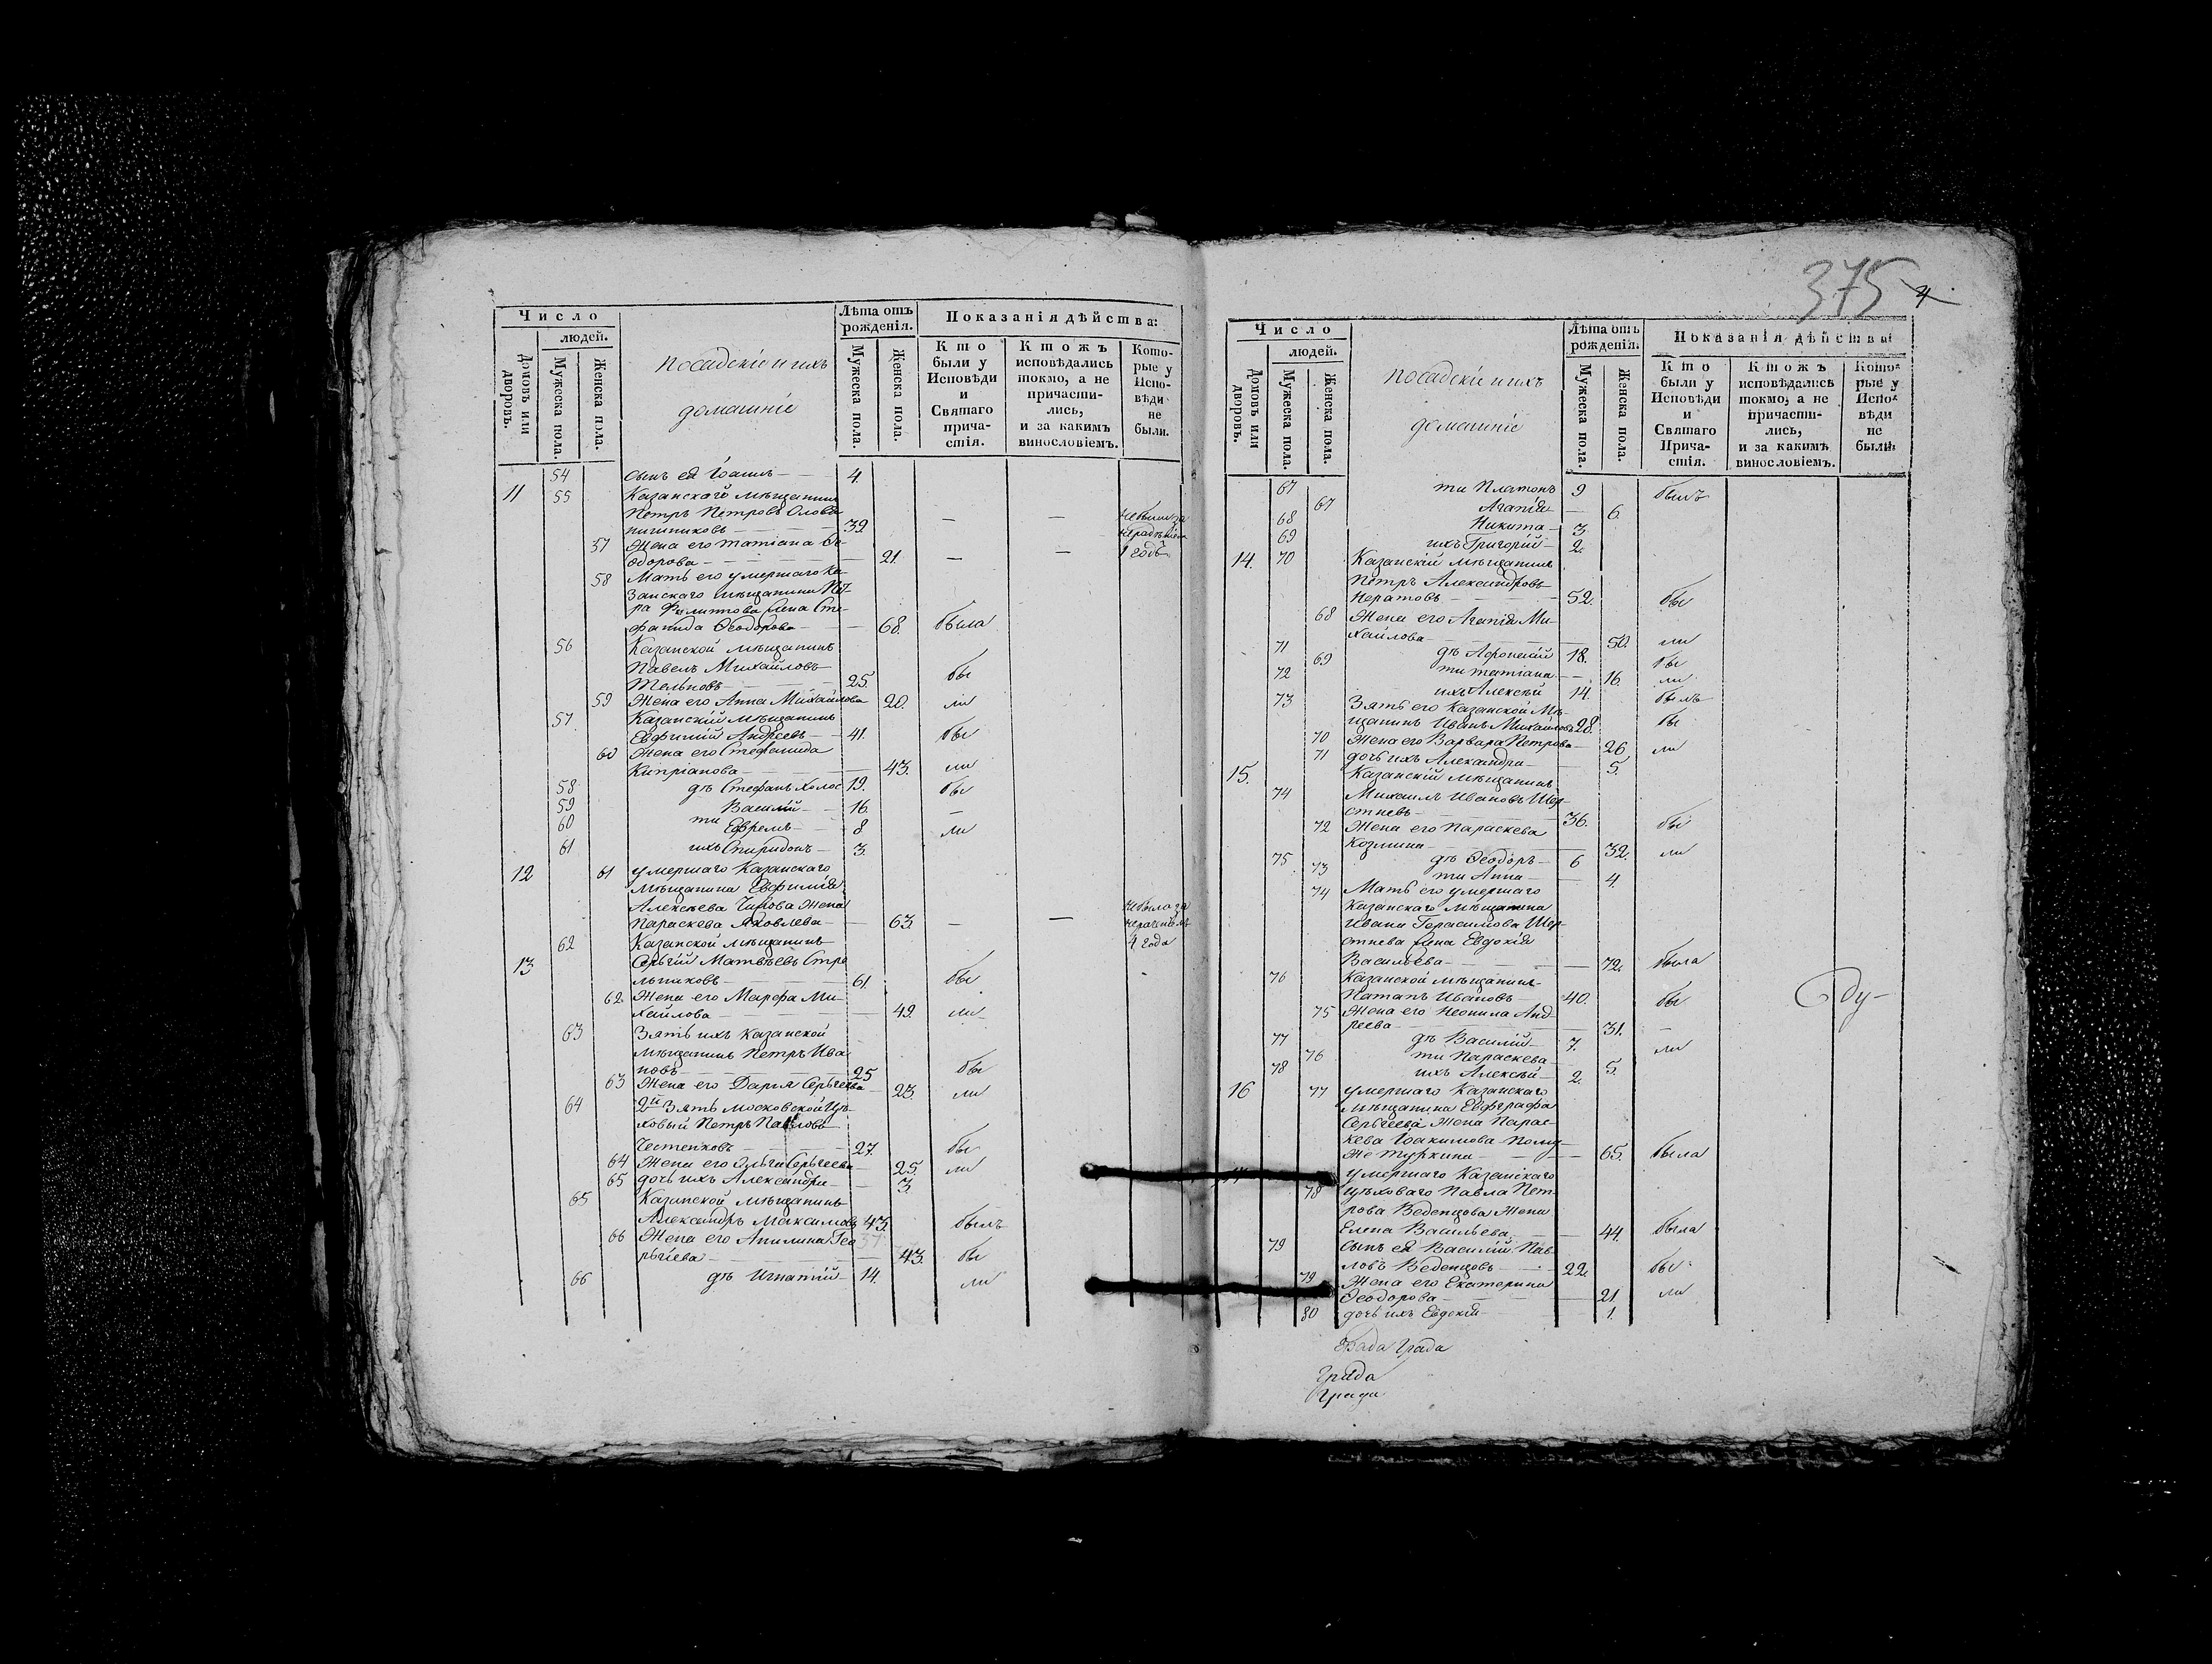 Число
людей.
Домовъ или дворовъ.
Мужеска пола.
Женска пола.
посадскіе и ихъ
домашніе
Лѣта отъ рожденія.
Мужеска пола.
Женска пола.
Показанія дѣйства:
Кто были у Исповѣди и Святаго прича-стія.
Ктожъ исповѣдались токмо, а не причасти-лись, и за какимъ винословіемъ.
Кото-рые у Испо-вѣди не были.
54 сынъ ея Іоаннъ — 4
11 55 Казанскаго мѣщанин
Петръ Петровъ Оловя
нишниковъ — 39. — — небыли за
57 Жена его татіана Ѳе- нерадѣніем
одорова — 21. — — 1 годъ
58 Мать его умершаго Ка-
занскаго мѣщанина Пет-
ра Филипова жена Сте-
фанида Ѳеодорова — 68. была
56 Казанской мѣщанинъ
Павелъ Михайловъ
— 25. бы
59 Жена его Анна Михайлова 20. ли
57 Казанскій мѣщанинъ
Евфимій Андреевъ — 41. бы
60 Жена его Стефанида
Кипріанова — 43. ли
58 дѣ Стефанъ холос 19. бы
59 Василій — 16. —
60 ти Ефремъ — 8 ли
61 ихъ Спиридонъ — 3.
12 61 умершаго Казанскаго
мѣщанина Евфимія
Алексѣева жена небыла за
Параскева Яковлева — 63. — —
62 Казанской мѣщанинъ 4 года
13 Сергій Матвѣевъ Стре
льниковъ — 61. бы
62. Жена его Марфа Ми-
хайлова — 49. ли
63 Зять ихъ Казанской
мѣщанинъ Петръ Ива
новъ — 25 бы
63 Жена его Дарья Сергѣева 23. ли
64 2й Зять московской цѣ-
ховый Петръ Павловъ
Честенковъ — 27. бы
64 Жена его Ольга Сергѣева 25. ли
65 дочь ихъ Александра — 3.
65 Казанской мѣщанинъ
Александръ Максимовъ 43. былъ
66 Жена его Геа 37
ргіева — 43. бы
66 дѣ Игнатій — 14. ли
375
4
Число
людей.
Домовъ или дворовъ.
Мужеска пола.
Женска пола.
посадскіе и ихъ
домашніе
Лѣта отъ рожденія.
Мужеска пола.
Женска пола.
Показанія дѣйства
Кто были у Исповѣди и Святаго Прича-стія.
Ктожъ исповѣдались токмо, а не причасти-лись, и за какимъ винословіемъ.
Кото-рые у Испо-вѣди не были.
67 ти Платонъ 9 былъ
67 Агапія — 6.
68 Никита — 3.
69 ихъ Григорій — 2.
14. 70 Казанскій мѣщанинъ
Петръ Александровъ
Нератовъ — 52. бы
68 Жена его Агапія Ми-
хайлова — 50. ли
71 дѣ Афонасій 18. бы
69 ти татіана — 16. ли
72 ихъ Алексѣй 14. былъ
73 Зять его Казанской Мѣ-
щанинъ Иванъ Михайловъ 28. бы
70 Жена его Варвара Петрова 26 ли
71 дочь ихъ Александра — 5.
15. Казанскій мѣщанинъ
74 Михаилъ Ивановъ Шер-
стневъ — 36. бы
72 Жена его Параскева
Козмина — 32. ли
75 дѣ Ѳеодоръ — 6
73 ти Анна — 4.
74 Мать его умершаго
Казанскаго мѣщанина
Ивана Герасимова Шер-
стнева жена Евдокія
Васильева — 72. была
76 Казанской мѣщанинъ
Патапъ Ивановъ 40. бы Ду-
75 Жена его Неонила Анд
реева — 31. —
77 дѣ Василій — 7. ли
76 ти Параскева — 5.
78 ихъ Алексѣй — 2.
16 77 умершаго Казанскаго
мѣщанина Евфграфа
Сергѣева жена Парас-
кева Іоакимова
— 65. была
умершаго Казанскаго
78 цѣховаго Павла Пет-
рова Веденцова жена
Елена Васильева — 44. была
79 сынъ ея Василій Пав-
ловъ Веденцовъ — 22. бы
79 Жена его Екатерина
Ѳеодорова — 21 ли
80 дочь ихъ Евдокія — 1.
Града
Града